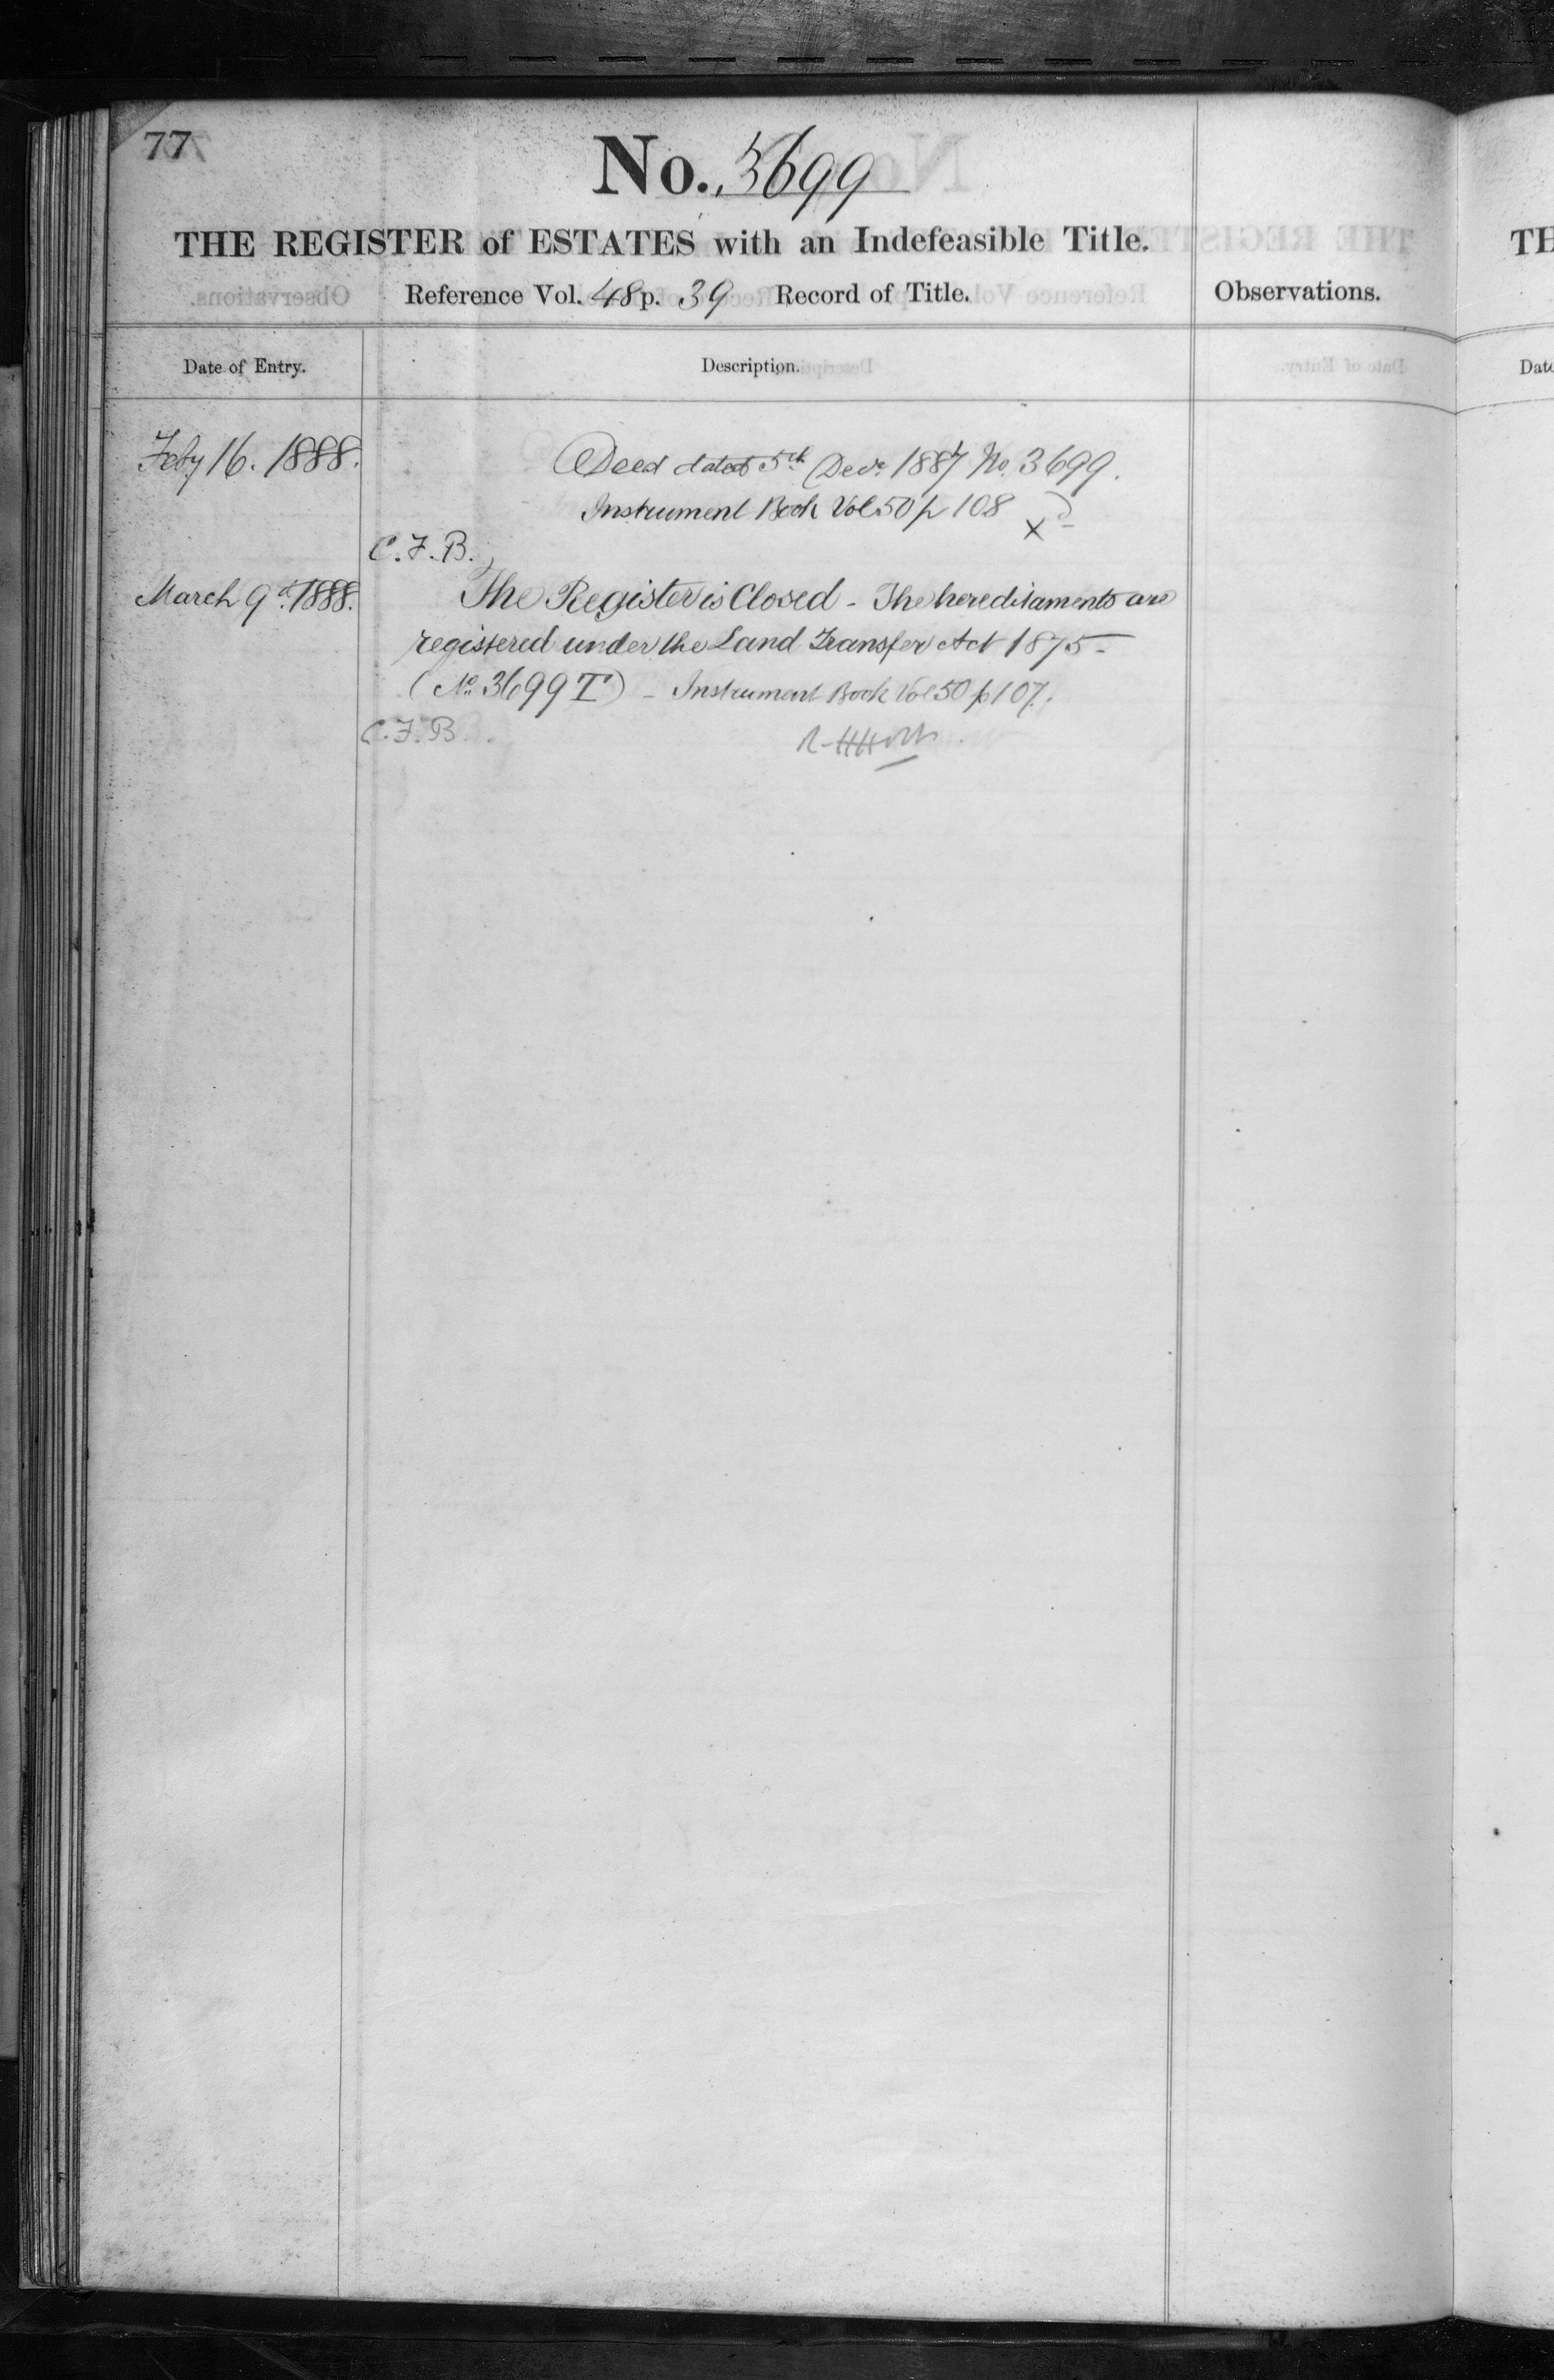 77
No. 3699
THE REGISTER of ESTATES with an Indefeasible Title.
Reference Vol. 48 p. 39 Record of Title.
Observations.
Date of Entry.
Description.
Feby 16. 1888.
Deed dated 5th Decr 1887 No. 3699.
Instrument Book Vol 50 p 108
X
C.F.B.
March 9th 1888.
The Register is Closed - The hereditaments are
registered under the Land Transfer Act 1875 -
(No. 3699 T) - Instrument Book Vol 50 p 107.
C.F.B.